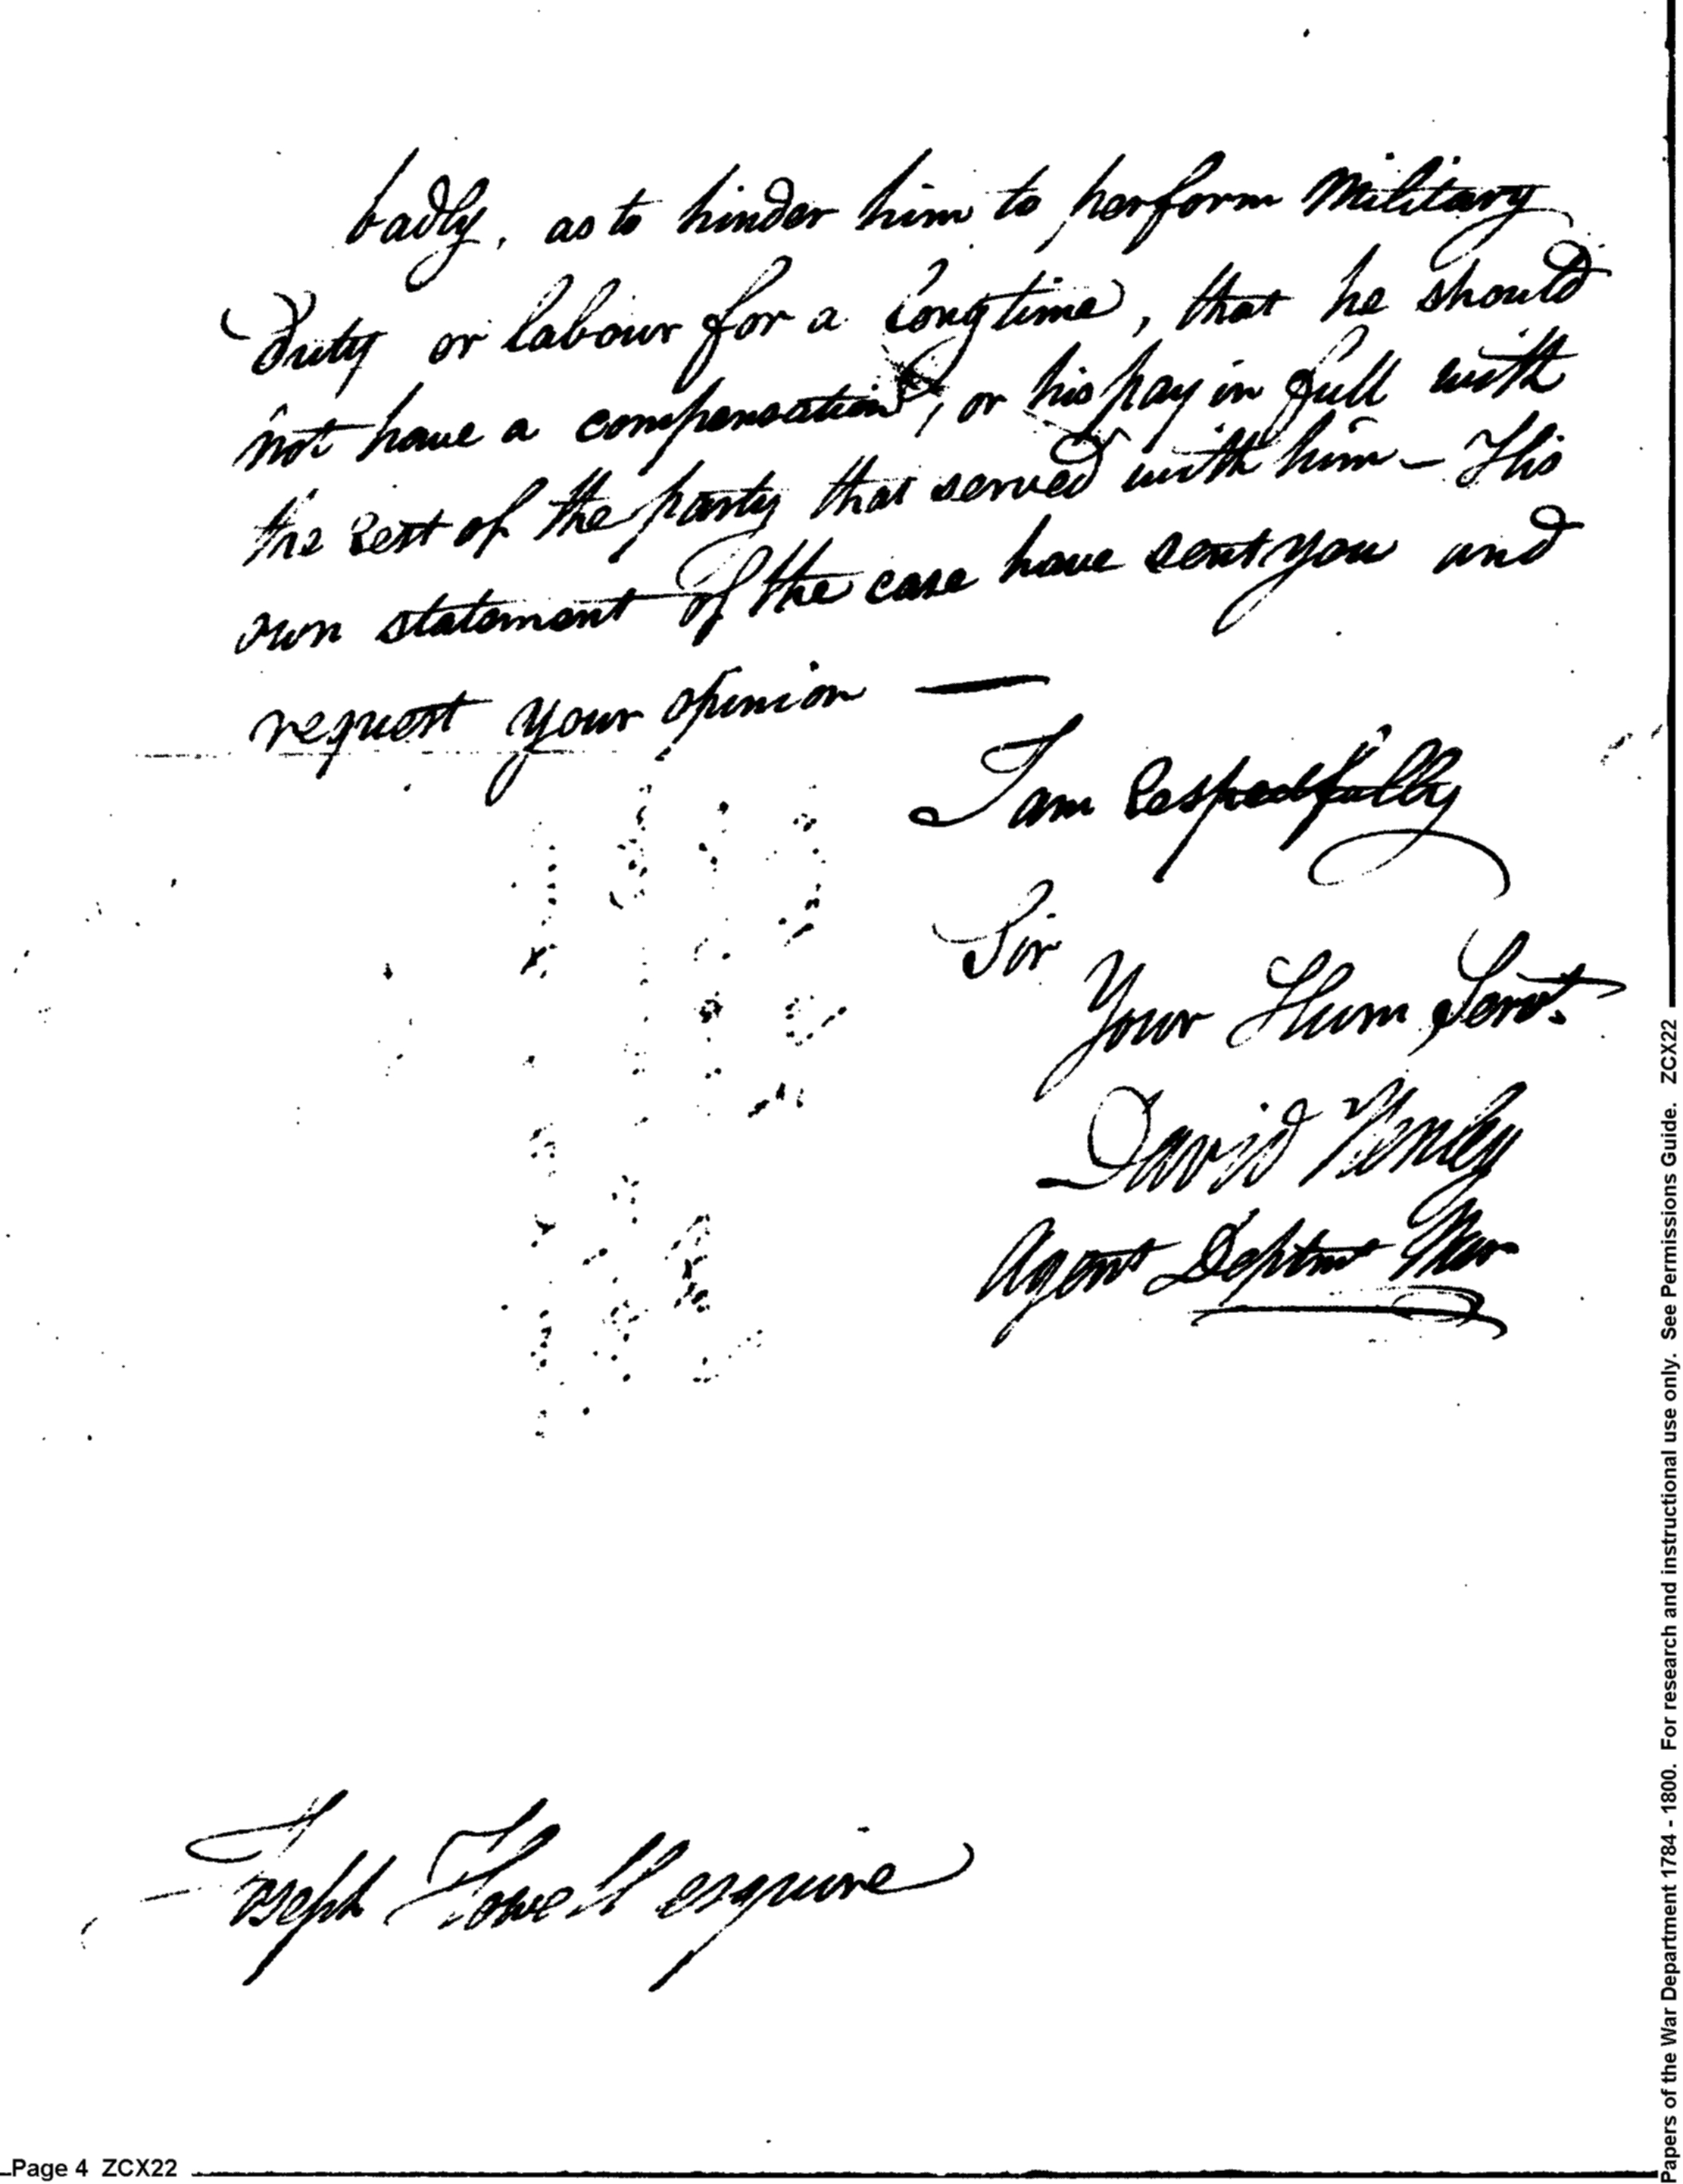 badly, as to hinder him to perform Military
duty or labour for a long time, that he should
not have a compensation, or his pay in full with
the Rest of the party that served with him - His
own statement of the case have sent you and
request your opinion —
I am Respectfully
Sir
Your Hum Servt.
David Henley
Agent Deptmt War
Joseph Howell esquire
Page 4 ZCX22
Papers of the War Department 1784 - 1800. For research and instructional use only. See Permissions Guide. ZCX22